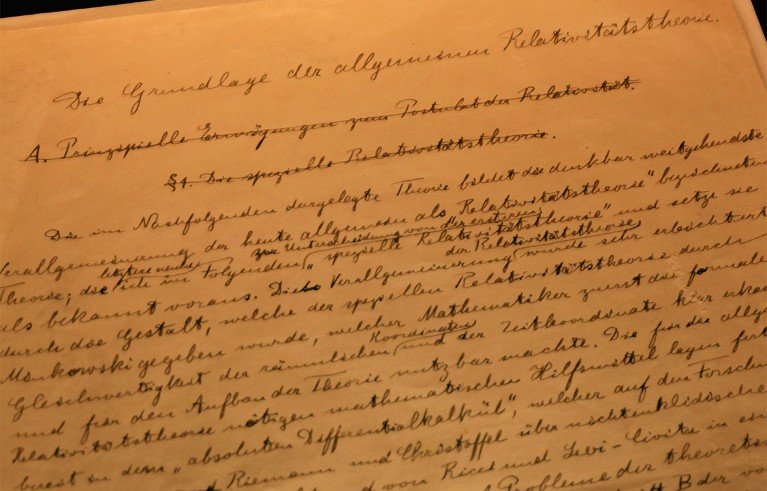 Die Grundlage der allgemeinen Relativitätstheorie.
A. Prinzipielle Erwägungen zum Postulat der Relativität.
§1. Die spezielle Relativitätstheorie.
Die im Nachfolgenden dargelegte Theorie bildet die denkbar weitgehendste
Verallgemeinerung der heute allgemein als „Relativitätstheorie" bezeichneten
letztere nenne zur Unterscheidung von der ersteren
Theorie; die ich im Folgenden „spezielle Relativitätstheorie" und setze sie
der Relativitätstheorie
als bekannt voraus. Die Verallgemeinerung wurde sehr erleichtert
durch die Gestalt, welche der speziellen Relativitätstheorie durch
Minkowski gegeben wurde, welcher Mathematiker zuerst die formale
Koordinaten
Gleichwertigkeit der räumlichen und der Zeitkoordinate klar erkan
und für den Aufbau der Theorie nutzbar machte. Die für die allge
Relativitätstheorie nötigen mathematischen Hilfsmittel lagen fert
bereit in dem „absoluten Differentialkalkül", welcher auf den Forsch
Riemann und Christoffel über nichteuklidische
von Ricci und Levi-Civita in ein
Probleme der theoret
B der vo